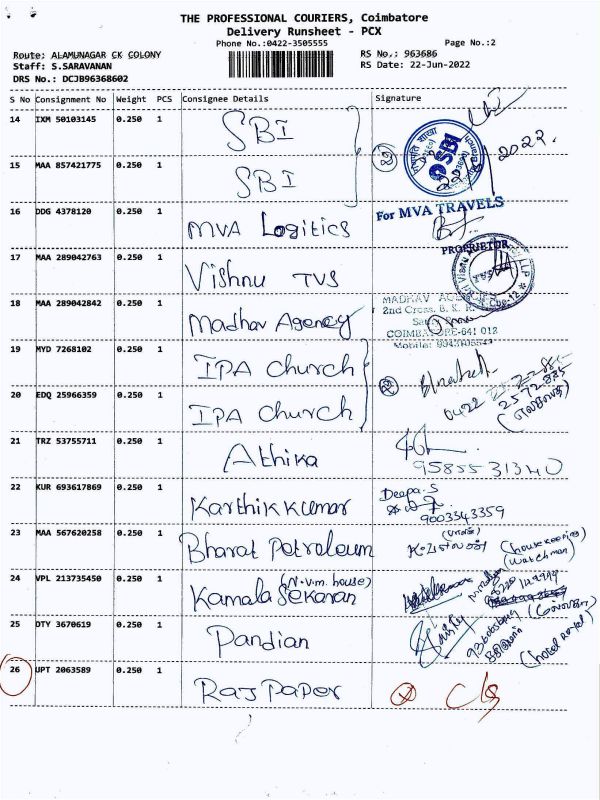 THE PROFESSIONAL COURIERS, Coimbatore
Delivery Runsheet - PCX
Phone No.:0422-3505555
Page No.:2
Route: ALAMUNAGAR CK COLONY
RS No.: 963686
Staff: S.SARAVANAN
RS Date: 22-Jun-2022
DRS No.: DCJB96368602
S No Consignment No Weight PCS Consignee Details Signature
14 IXM 50103145 0.250 1 SBI
SBI
2022
15 MAA 857421775 0.250 1 SBI
For MVA TRAVELS
16 DDG 4378120 0.250 1 MVA Logitics
PROPRIETOR
17 MAA 289042763 0.250 1 Vishnu TVS
18 MAA 289042842 0.250 1 Madhav Agency
MADHAV
2nd Cross, B. K. R.
COIMBATORE-641 012
Mobile:
19 MYD 7268102 0.250 1 IPA church
20 EDQ 25966359 0.250 1 IPA church
0422
2572885
21 TRZ 53755711 0.250 1 Athika
9585531340
22 KUR 693617869 0.250 1 Karthik kumar
Deepa.S
9003343359
23 MAA 567620258 0.250 1 Bharat Petroleum
(housekeeping)
(watchman)
24 VPL 213735450 0.250 1 Kamala Sekaran (N.V.M. house)
25 DTY 3670619 0.250 1 Pandian
26 UPT 2063589 0.250 1 Raj Paper